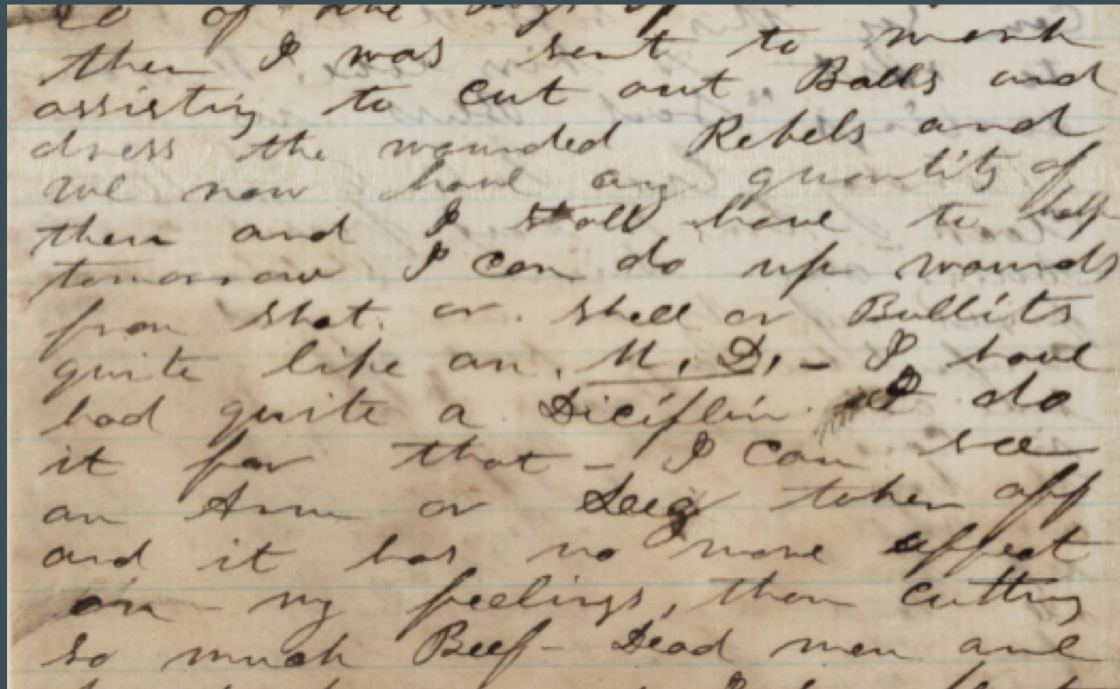 of the
then I was sent to work
assisting to cut out Balls and
dress the wounded Rebels and
we now have any quantity of
them and I shall have to help
tomorrow I can do up wounds
from shot or shell or Bullits
quite like an M. D. - I have
had quite a Diciflin I do
it for that - I can see
an Arm or Leeg taken off
and it has no more affect
on my feelings, than cutting
so much Beef - Dead men are